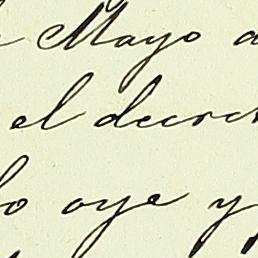 Mayo
el decret
oye y